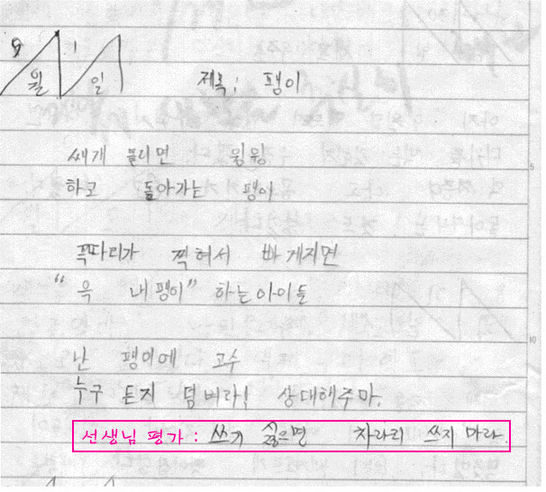 9월 1일
제목: 팽이
쌔개 돌리면 윙윙
하고 돌아가는 팽이
꼭따리가 찍혀서 빠게지면
"윽 내팽이" 하는아이들
난 팽이에 고수
누구 든지 덤벼라! 상대해주마.
선생님 평가 : 쓰기 싫으면 차라리 쓰지 마라.
5
10